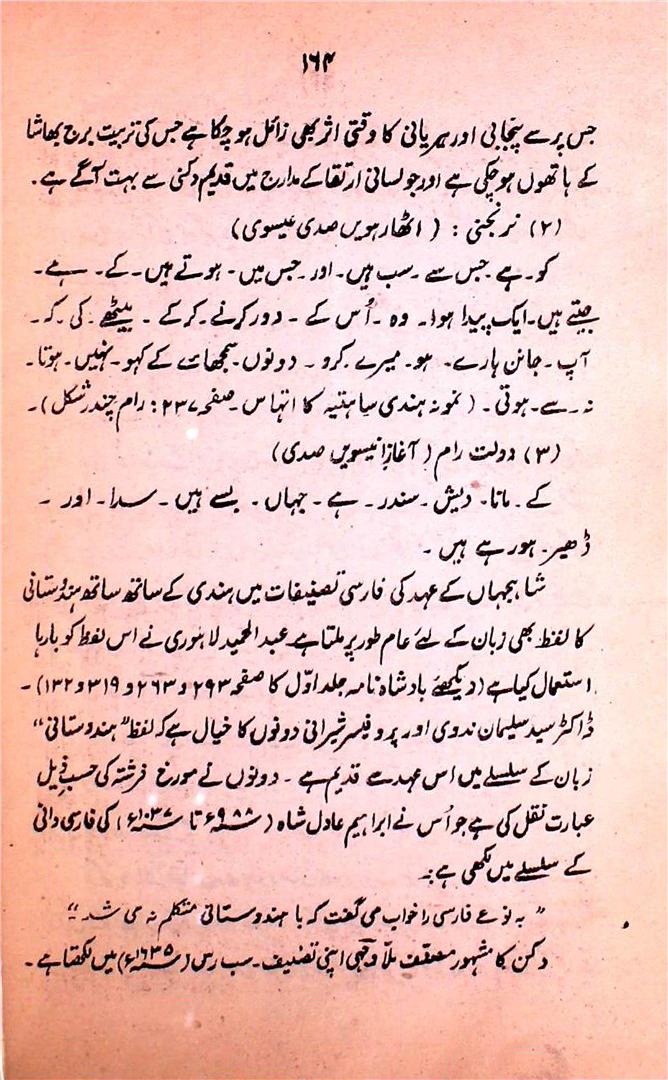 ۱۶۴
جس پر سے پنجابی اور ہریانی کا وقتی اثر بھی زائل ہو چکا ہے جس کی تربیت برج بھاشا
کے ہاتھوں ہوچکی ہے اور جو لسانی ارتقا کے مدارج میں قدیم دکنی سے بہت آگے ہے۔
(۲) نرنجنی : ( اٹھارہویں صدی عیسوی)
کو۔ ہے جس سے ۔ سب ہیں۔ اور ۔ جس میں۔ ہوتے ہیں۔ کے۔ ہے۔
جیتے ہیں۔ ایک پیدا ہوا۔ وہ ۔ اُس کے ۔ دور کرنے۔ کرکے ۔ بیٹھے۔ کی ۔ کہ۔
آپ۔ جانن ہارے۔ ہو۔ میرے ۔ کرو ۔ دونوں۔ سمجھائے کے کہو۔ نہیں۔ ہوتا۔
نہ۔ سے۔ ہوتی۔ ( نمونہ ہندی ساہتیہ کا اتہاس۔ صفحہ ۲۳۷: رام چندر شکل)۔
(۳) دولت رام ( آغاز انیسویں صدی)
کے۔ مانا۔ دیش۔ سندر۔ ہے۔ جہاں۔ بسے ہیں۔ سدا۔ اور ۔
ڈھیر۔ ہو رہے ہیں ۔
شاہجہاں کے عہد کی فارسی تصنیفات میں ہندی کے ساتھ ساتھ ہندوستانی
کا لفظ بھی زبان کے لئے عام طور پر ملتا ہے عبدالحمید لاہوری نے اس لفظ کو بارہا
استعمال کیا ہے (دیکھئے بادشاہ نامہ جلد اوّل کا صفحہ ۲۹۳ و ۲۶۳ و ۳۱۹ و ۱۳۲)۔
ڈاکٹر سید سلیمان ندوی اور پروفیسر شیرانی دونوں کا خیال ہے کہ لفظ "ہندوستانی"
زبان کے سلسلے میں اس عہد سے قدیم ہے ۔ دونوں نے مورخ فرشتہ کی حسب ذیل
عبارت نقل کی ہے جو اُس نے ابراہیم عادل شاہ ( ۹۸۸ء تا ۱۰۳۷ء) کی فارسی دانی
کے سلسلے میں لکھی ہے:۔
" بہ نوعے فارسی را خواب می گفت کہ با ہندوستانی متکلم نہ می شد "
دکن کا مشہور مصنف ملّا وجہی اپنی تصنیف۔ سب رس (۱۶۳۵ء) میں لکھتا ہے۔